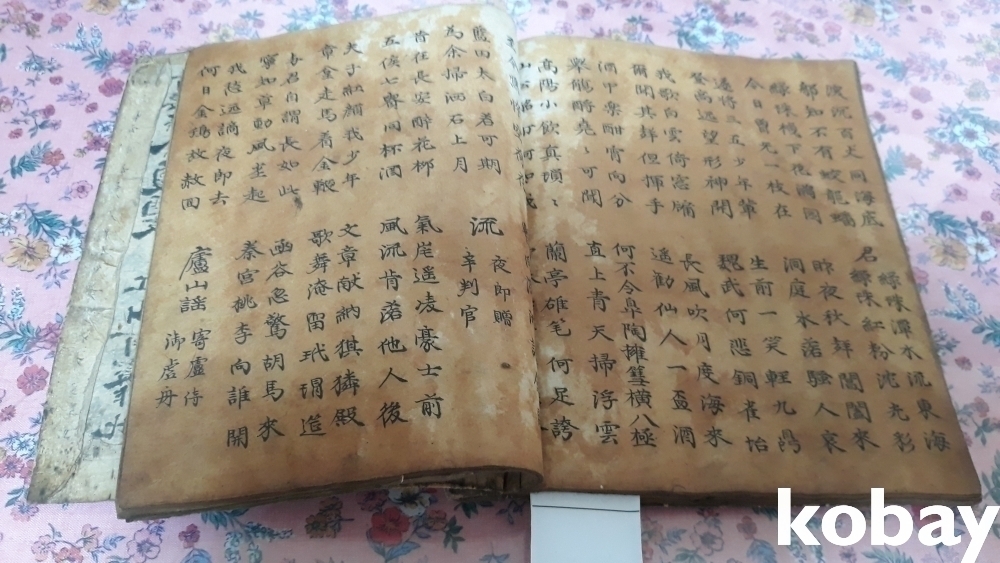 深沉百丈洞海底
那知不有蛟龍蟠
名綠珠潭水流東海
綠珠紅粉沈光彩
綠珠樓下花滿園
今日曾無一枝在
昨夜秋聲閶闔來
洞庭水落騷人哀
遂將三五少年輩
登高遠望形神開
生前一笑輕九鼎
魏武何悲銅雀怡
我歌白雲倚窓牖
爾聞其聲但揮手
長風吹月度海來
遙勸仙人一盃酒
酒中樂酣宵向分
擧觴酹堯堯可聞
何不令皐陶擁篲橫八極
直上青天掃浮雲
高陽小飲真瑣〻
蘭亭雄笔何足誇
藍田太白若可期
為余掃洒石上月
流夜郎贈
辛判官
昔在長安醉花柳
五侯七貴同杯酒
氣崖遙凌豪士前
風流肯落他人後
夫子紅顏我少年
章金走馬着金鞭
文章献納猉獜殿
歌舞淹留玳瑁筵
与君自謂長如此
寧知草動風塵起
函谷忽驚胡馬來
秦宮桃李向誰開
我愁遠謫夜郎去
何日金鷄放赦回
廬山謠寄盧侍
御虛舟
kobay